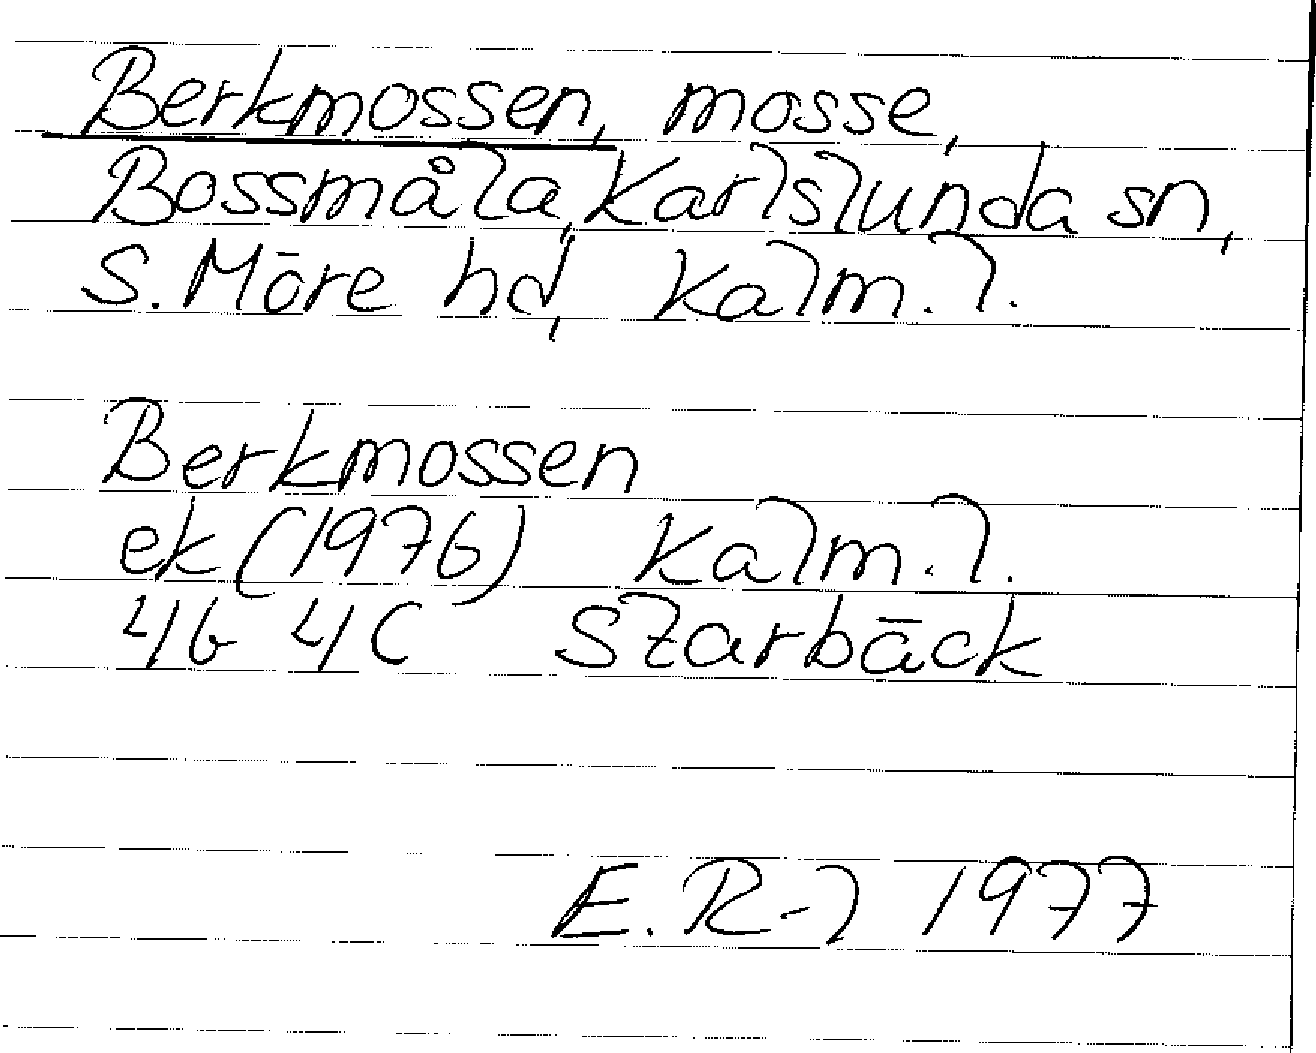 Berkmossen, mosse,
Bossmåla, Karlslunda sn,
S. Möre hd, Kalm. l.
Berkmossen
ek (1976) Kalm. l.
4G 4C Starbäck
E. R-l 1977